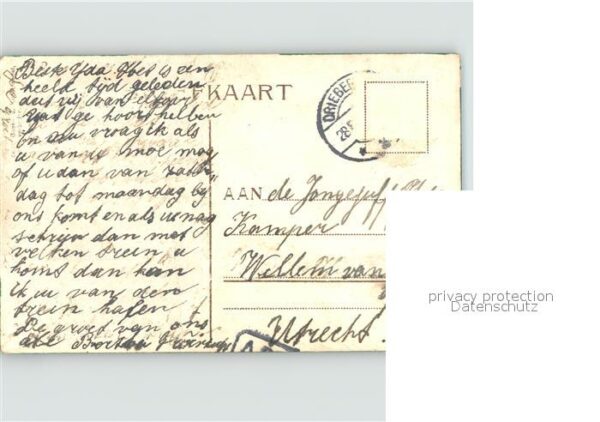 Beste Yda Het is een
heele tijd geleden
dat wij van elkaar
hebben
en nu vraag ik als
u van u moe mag
of u dan van zater
dag tot maandag bij
ons komt en als u mag
schrijf dan met
welken trein u
komt dan kan
ik u van den
trein halen
de groet van ons
KAART
DRIEBER
28
AAN de Jongejuf
Kamper
Willem van
Utrecht.
privacy protection
Datenschutz